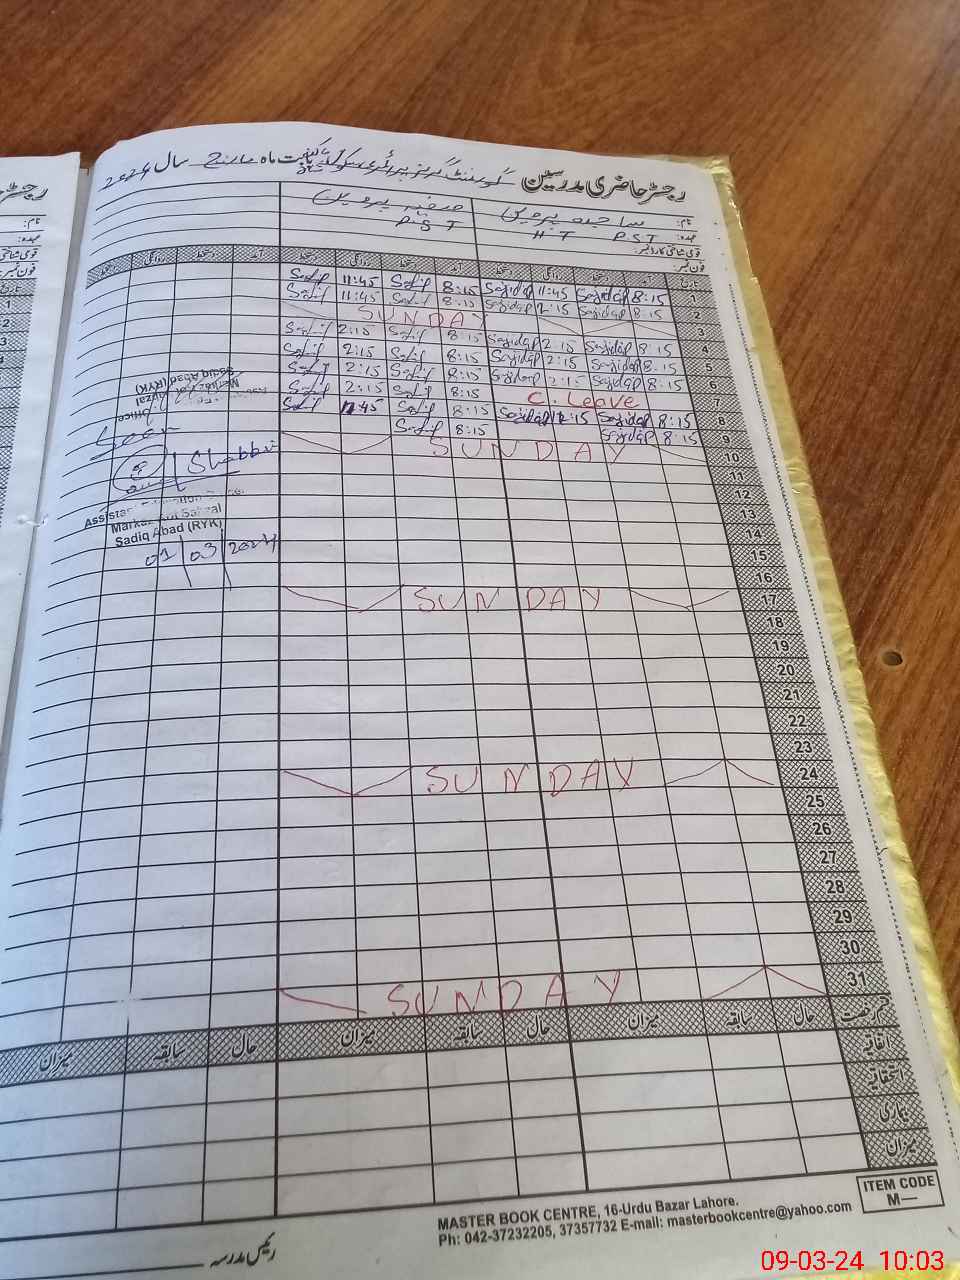 رجسٹر حاضری مدرسین گورنمنٹ گرلز پرائمری سکول بابت ماہ مارچ سال 2024
نام: ساجدہ پروین صفیہ پروین
عہدہ: PST HT PST
قومی شناختی کارڈ نمبر:
فون نمبر:
تاریخ آمد دستخط روانگی دستخط آمد دستخط روانگی دستخط آمد دستخط روانگی دستخط
1 8:15 Sajidap 11:45 Sajidap 8:15 Safip 11:45 Safip
2 8:15 Sajidap 2:15 Sajidap 8:15 Safip 11:45 Safip
3 SUNDAY
4 8:15 Sajidap 2:15 Sajidap 8:15 Safip 2:15 Safip
5 8:15 Sajidap 2:15 Sajidap 8:15 Safip 2:15 Safip
6 8:15 Sajidap 2:15 Sajidap 8:15 Safip 2:15 Safip
7 C. Leave 8:15 Safip 2:15 Safip
8 8:15 Sajidap 12:15 Sajidap 8:15 Safip Safip
9 8:15 Sajidap 8:15 Safip
10 SUNDAY
11
12
13
14
15
16
17 SUNDAY
18
19
20
21
22
23
24 SUNDAY
25
26
27
28
29
30
31 SUNDAY
Sadiq Abad (RYK)
Seen
Shabbir
Assistant
Sadiq Abad (RYK)
01 03 2024
قسم رخصت حال سابقہ میزان حال سابقہ میزان حال سابقہ میزان
اتفاقیہ
استحقاقیہ
بیماری
میزان
رئیس مدرسہ
MASTER BOOK CENTRE, 16-Urdu Bazar Lahore.
Ph: 042-37232205, 37357732 E-mail: masterbookcentre@yahoo.com
ITEM CODE
M—
09-03-24 10:03